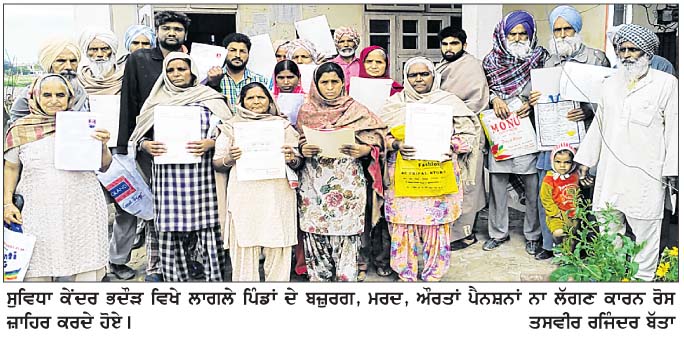 MONU
MONU
Fashion
ਸੁਵਿਧਾ ਕੇਂਦਰ ਭਦੌੜ ਵਿਖੇ ਲਾਗਲੇ ਪਿੰਡਾਂ ਦੇ ਬਜ਼ੁਰਗ, ਮਰਦ, ਔਰਤਾਂ ਪੈਨਸ਼ਨਾਂ ਨਾ ਲੱਗਣ ਕਾਰਨ ਰੋਸ
ਜ਼ਾਹਿਰ ਕਰਦੇ ਹੋਏ। ਤਸਵੀਰ ਰਜਿੰਦਰ ਬੱਤਾ